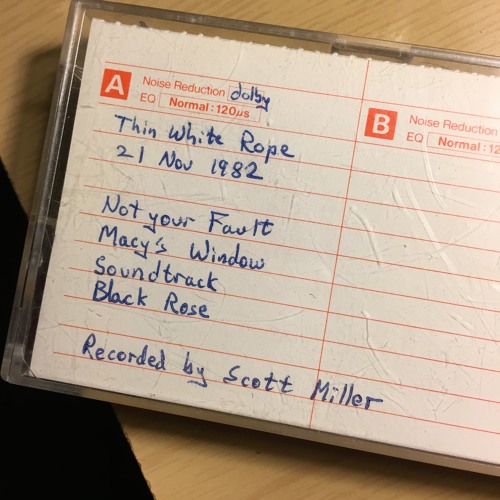 A Noise Reduction dolby
EQ Normal : 120µs
Thin White Rope
21 Nov 1982
Not your Fault
Macy's Window
Soundtrack
Black Rose
Recorded by Scott Miller
B Noise Reduction
EQ Normal : 12